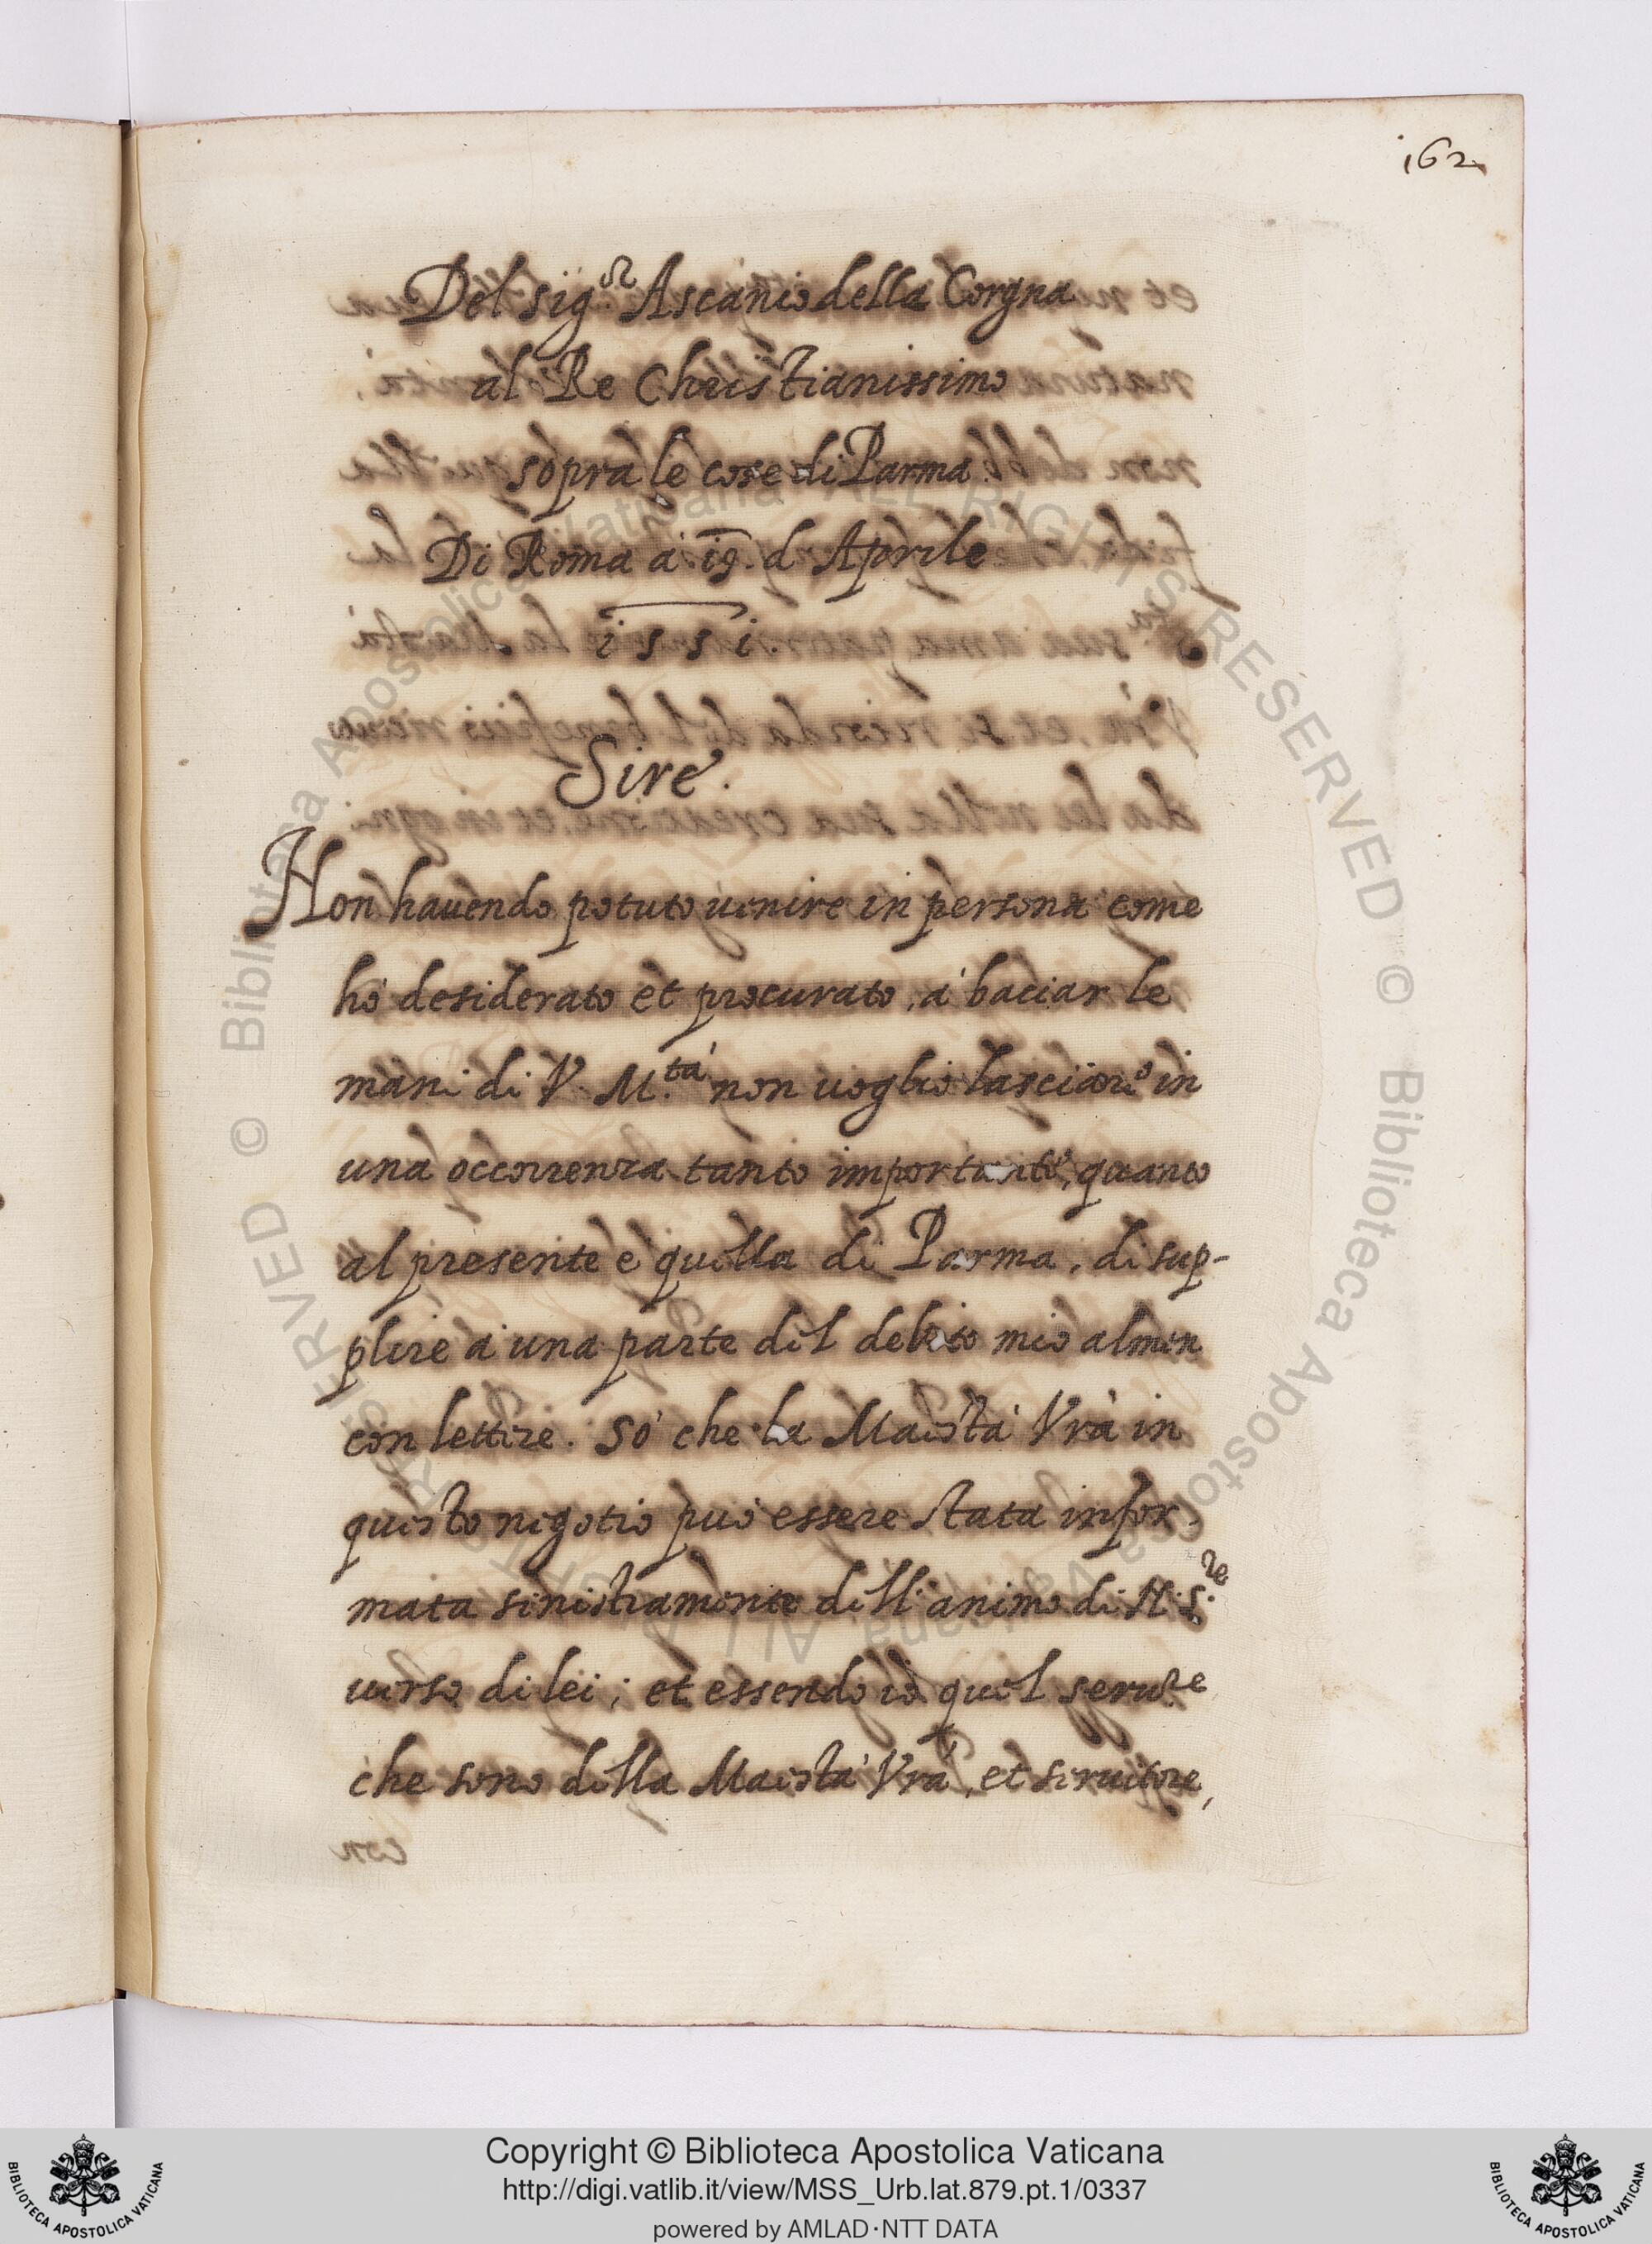 162
Del sig.or Ascanio della Corgna
al Re Christianissimo
sopra le cose di Parma.
Di Roma à 19. d Aprile
1551.
Sire.
Non hauendo potuto uenire in persona come
hò desiderato et procurato, à baciar le
mani di V. M.tà non uoglio lasciare in
una occorrenza tanto importante, quanto
al presente è quella di Parma, di sup-
plire à una parte del debito mio almen
con lettere. Sò che la Maestà Vrà in
questo negotio può essere stata infor-
mata sinistramente dell'animo di N. S.re
uerso di lei; et essendo io quel seru.re
che sono della Maestà Vrà, et seruitore,
© Biblioteca Apostolica Vaticana ALL RIGHTS RESERVED © Biblioteca Apostolica Vaticana ALL RIGHTS RESERVED
BIBLIOTECA APOSTOLICA VATICANA
Copyright © Biblioteca Apostolica Vaticana
http://digi.vatlib.it/view/MSS_Urb.lat.879.pt.1/0337
powered by AMLAD·NTT DATA
BIBLIOTECA APOSTOLICA VATICANA